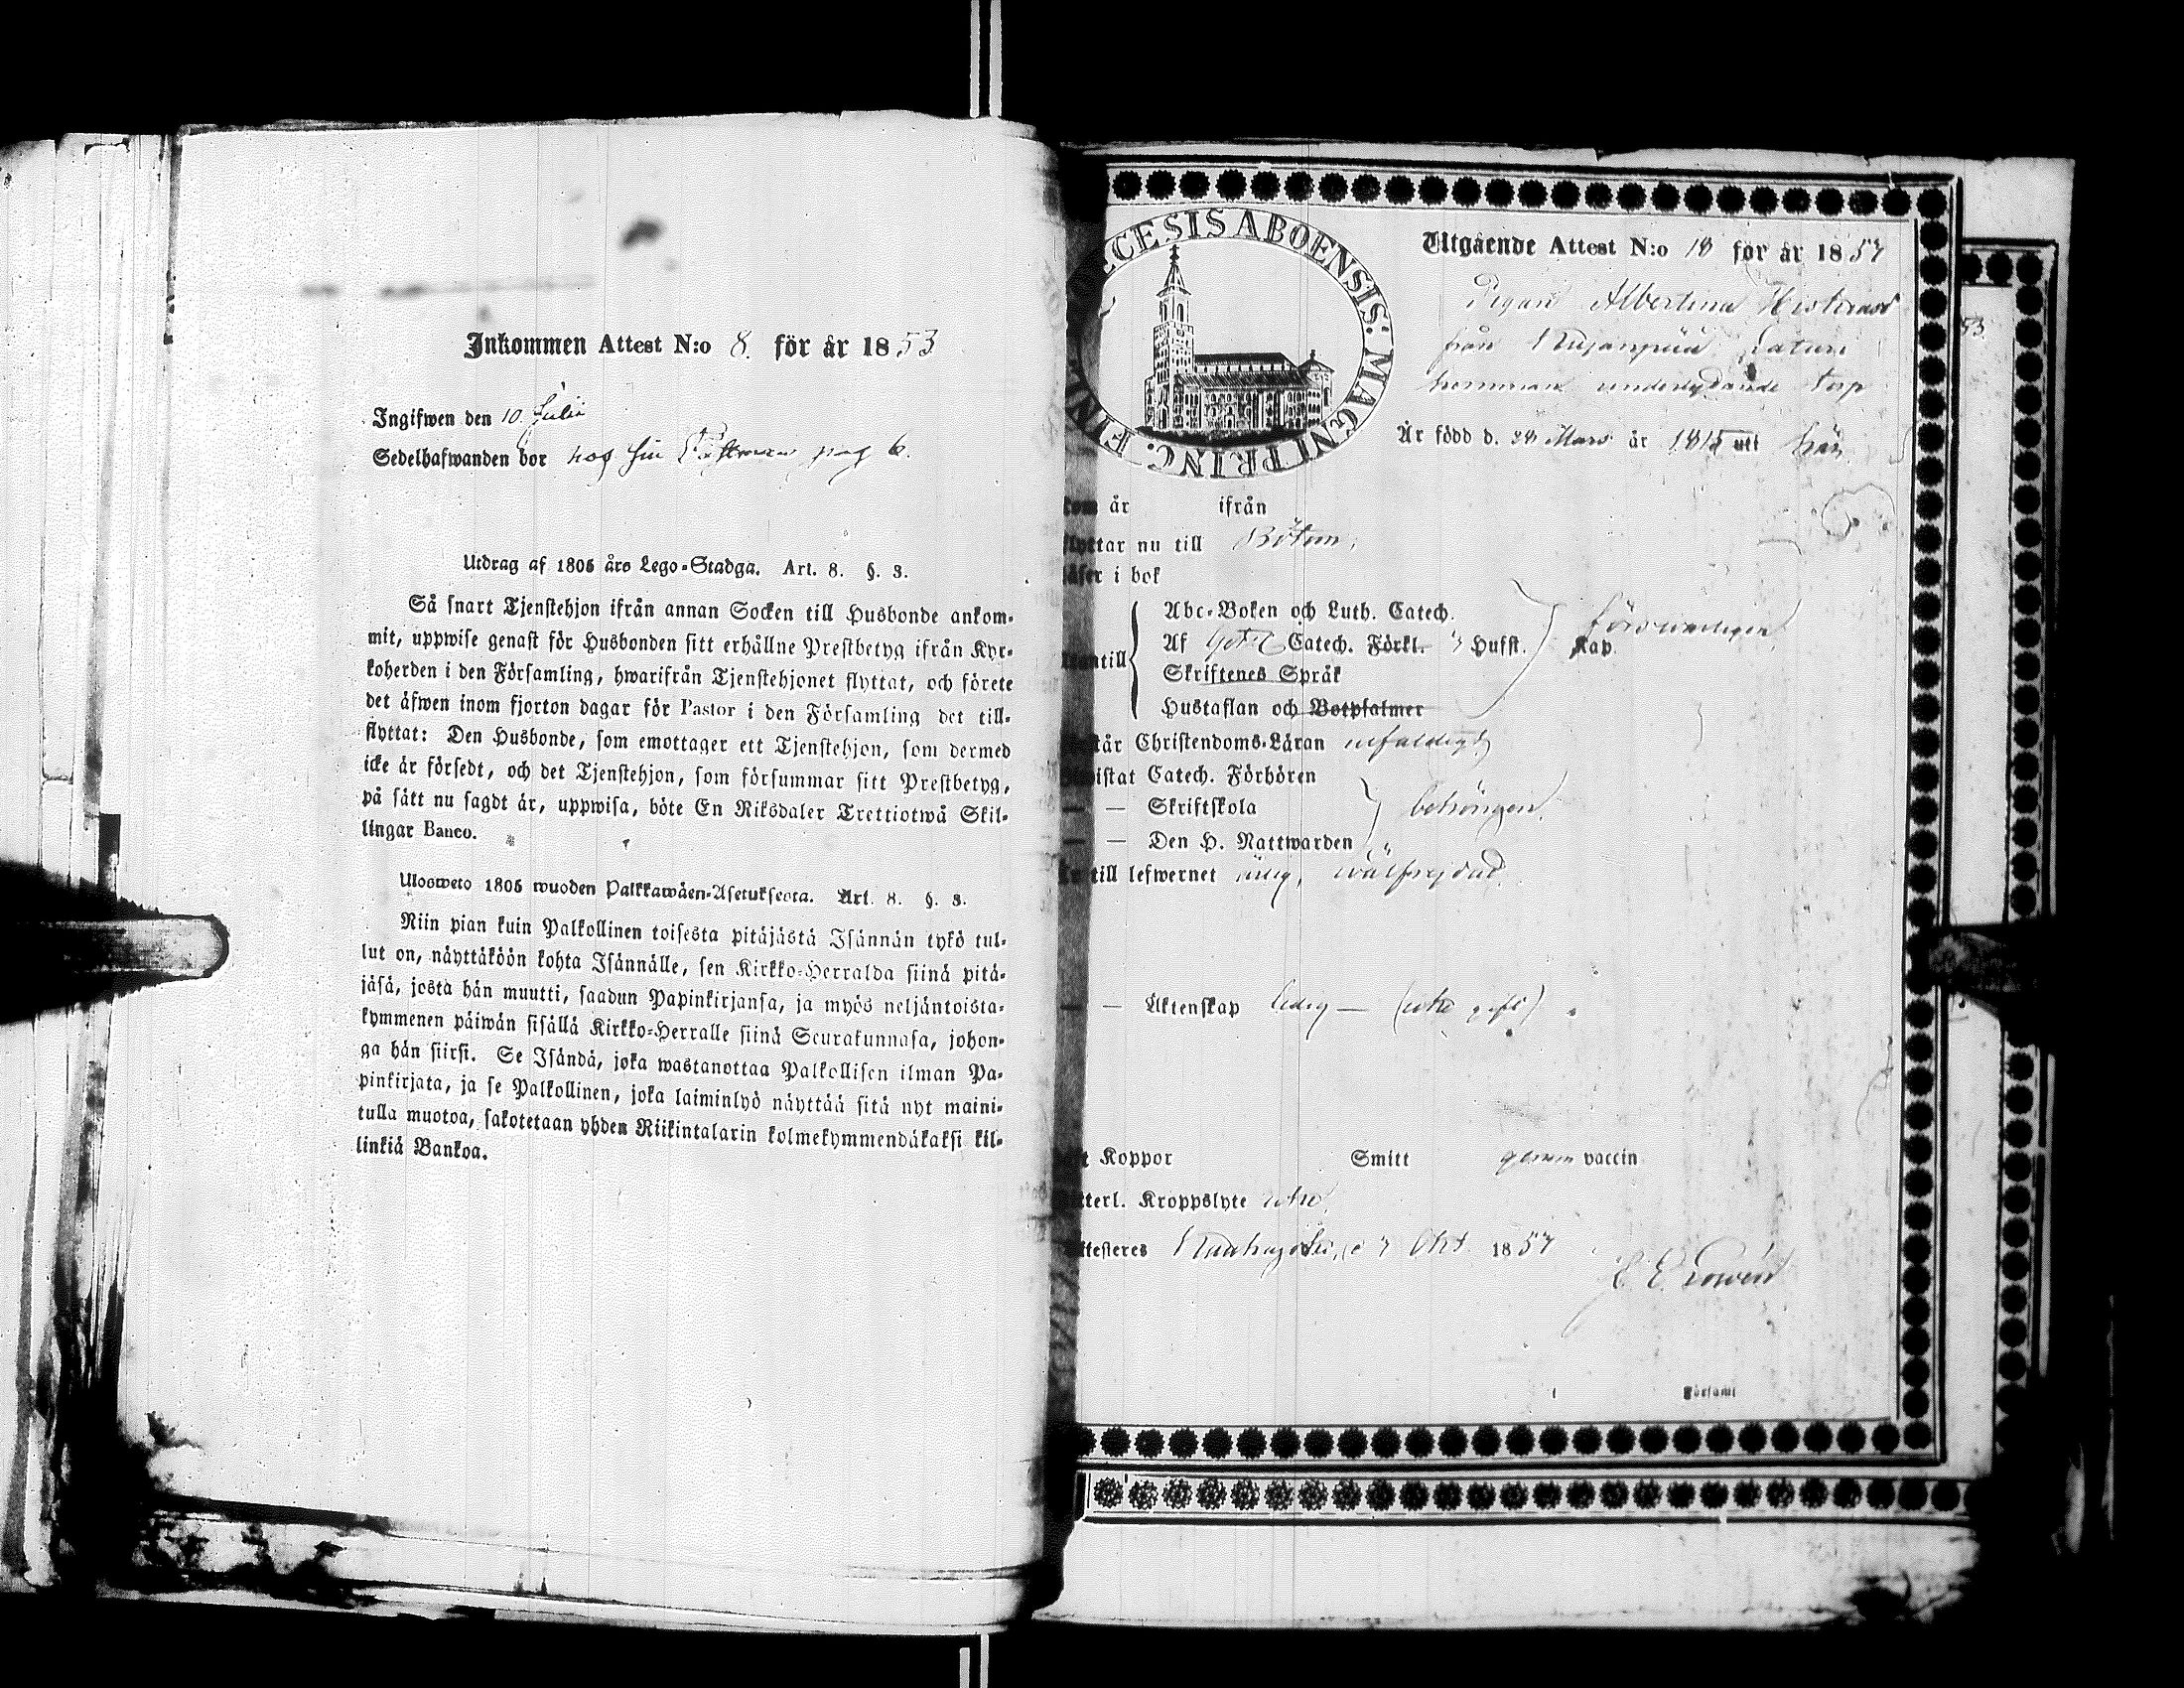 Inkommen Attest N:o 8. för år 1853
Ingifwen den 10 Julii
Sedelhafwanden bor hos sin pag 6.
Utdrag af 1805 års Lego-Stadga. Art. 8. §. 3.
Så snart Tjenstehjon ifrån annan Socken till Husbonde ankom-
mit, uppwise genast för Husbonden sitt erhållne Prestbetyg ifrån Kyr-
koherden i den Församling, hwarifrån Tjenstehjonet flyttat, och förete
det äfwen inom fjorton dagar för Pastor i den Församling det till-
flyttat: Den Husbonde, som emottager ett Tjenstehjon, som dermed
icke är försedt, och det Tjenstehjon, som försummar sitt Prestbetyg,
på sätt nu sagdt är, uppwisa, böte En Riksdaler Trettiotwå Skil-
lingar Banco.
Ulosweto 1805 wuoden Palkkawäen-Asetuksesta. Art. 8. §. 3.
Niin pian kuin Palkollinen toisesta pitäjästä Isännän tykö tul-
lut on, näyttäköön kohta Isännälle, sen Kirkko-Herralda siinä pitä-
jäsä, josta hän muutti, saadun Papinkirjansa, ja myös neljäntoista-
kymmenen päiwän sisällä Kirkko-Herralle siinä Seurakunnasa, johon-
ga hän siirsi. Se Isändä, joka wastanottaa Palkollisen ilman Pa-
pinkirjata, ja se Palkollinen, joka laiminlyö näyttää sitä nyt maini-
tulla muotoa, sakotetaan yhden Riikintalarin kolmekymmendäkaksi kil-
linkiä Bankoa.
CESIS ABOENSIS: MAGNI PRINC. FIN
Utgående Attest N:o 18 för år 1857
Pigan Albertina
från
hemman underlydande torp
Är född d. 28 Mars år 1815 uti
år ifrån
flyttar nu till Bötom,
läser i bok
Abc-Boken och Luth. Catech.
Af Catech. Förkl. Hufst. kap
Skriftenes Språk
Hustaflan och Botpsalmer
Christendoms-Läran
Catech. Förhören
— — Skriftskola
— — Den H. Nattwarden
till lefwernet ärlig, wälfrejdad
— — Äktenskap ledig — (icke gift)
Koppor Smitt genom vaccin
Kroppslyte icke
Attesteres d 7 Okt. 1857
Församl
53.